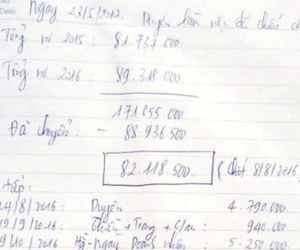 Ngày 23/5/2017.
Duyên làm việc đối chiếu
Tổng nợ 2015 : 81.737.000
Tổng nợ 2016 : 89.318.000
171.055.000
Đã chuyển : - 88.936.500
82.118.500. ( Chốt 8/8/2016)
tiếp:
24/8/2016: Duyên 4.790.000
19/9/2016: Thiên + Trang + C/au : 940.000
9/10/2016 Hội-Ngày Doanh nhân 5.250.000